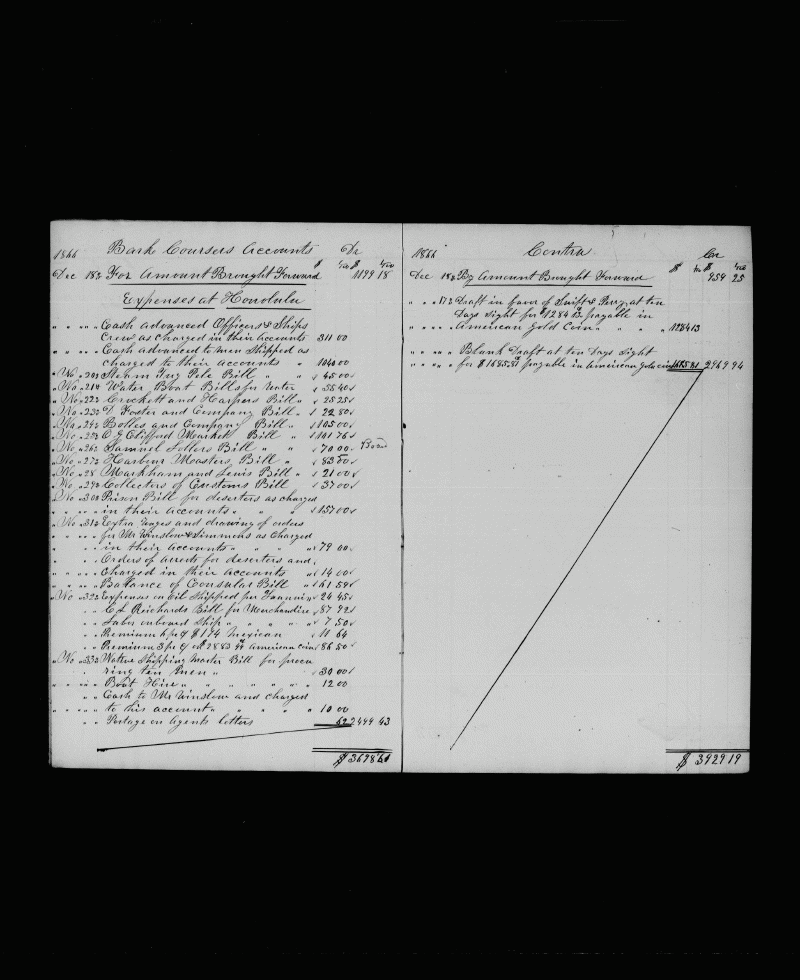 1866 Bark Coursers Accounts Dr
$ 1/100 $ 1/100
Dec 18th For Amount Brought Forward 1199 18
Expenses at Honolulu
" " " " Cash advanced Officers & Ships
Crew as charged in their Accounts 311 00
" " " " Cash advanced to men Shipped as
charged to their accounts " 1040 00
" No " 20 Steam Tug Pele Bill " " " 45 00
" No " 21 Water Boat Bills for Water " 55 40
" No " 22 Crockett and Harpers Bill " " 25 25
" No " 23 D Foster and Company Bill " 22 80
" No " 24 Bolles and Company Bill " 105 00
" No " 25 C G Clifford Market Bill " 101 76
" No " 26 Samuel Sellers Bill " " " 70 00 Board
" No " 27 Harbour Masters Bill " " 83 60
" No " 28 Markham and Lewis Bill " " 21 00
" No " 29 Collectors of Customs Bill " 37 00
" No " 30 Prison Bill for deserters as charged
" " " " in their accounts " " " " 157 00
" No " 31 Extra wages and drawing of orders
" " " " for Mr Winslow & Simmons as Charged
" " in their accounts " " " " 79 00
" " Orders of arrests for deserters and
" " " " Charged in their accounts " 14 00
" " " " Ballance of Consular Bill " 61 59
" No " 32 Expenses on Oil Shipped per " 24 45
" " C L Richards Bill for Merchandise " 87 92
" " Labor onboard Ship " " " " " 7 50
" " Premium 6 pr ct $194 Mexican " 11 64
" " Premium 3 pr ct on 2883 American Coin 86 50
" No " 33 Native Shipping Master Bill for procu
ring ten Men " " 30 00
" " " " Boat Hire " " " " " " " 12 00
" " Cash to Mr Winslow and charged
" " " " to his account " " " " " 10 00
" " Postage on Agents letters 62 2499 43
$ 3698 61
1866 Contra Cr
$ 1/100 $ 1/100
Dec 18th By Amount Brought Forward 959 25
" " " 17th Draft in favor of Swift & Perry at ten
Days Sight for $1284 13 payable in
" " " " American Gold Coin " " " " 1284 13
" " " " Blank Draft at ten Days Sight
" " " " for $1685 81 payable in American Gold coin 1685 81 2969 94
$ 3929 19